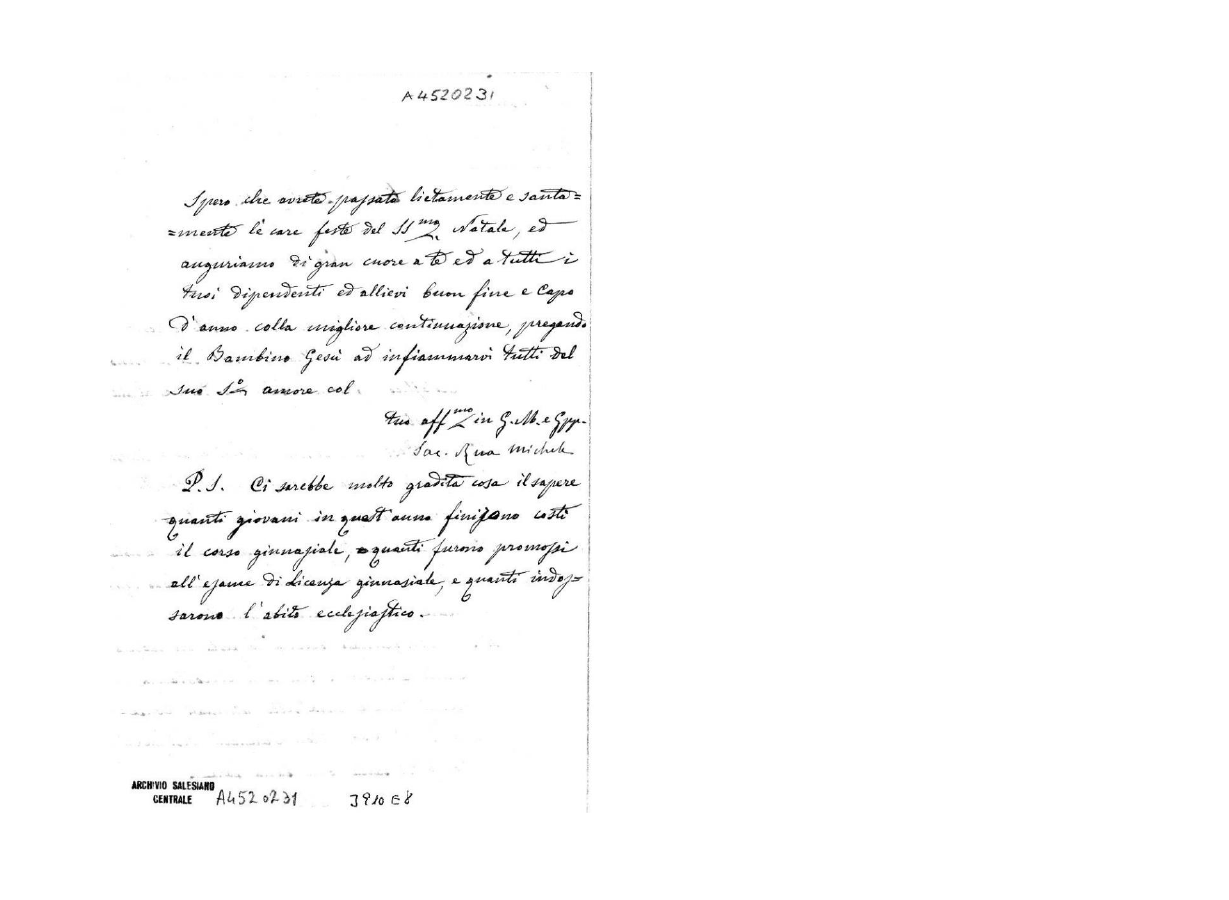 A4520231
Spero che avrete passato lietamente e santa=
=mente le care feste del SS.mo Natale, ed
auguriamo di gran cuore a te ed a tutti i
tuoi dipendenti ed allievi buon fine e Capo
d'anno colla migliore continuazione, pregando
il Bambino Gesù ad infiammarvi tutti del
suo So amore col
tuo aff.mo in G. M. e Gpp.
Sac. Rua Michele
P. S. Ci sarebbe molto gradita cosa il sapere
quanti giovani in quest'anno finirono costì
il corso ginnasiale, quanti furono promossi
all'esame di Licenza ginnasiale, e quanti indos=
sarono l'abito ecclesiastico.
ARCHIVIO SALESIANO
CENTRALE A4520231 3910 E8